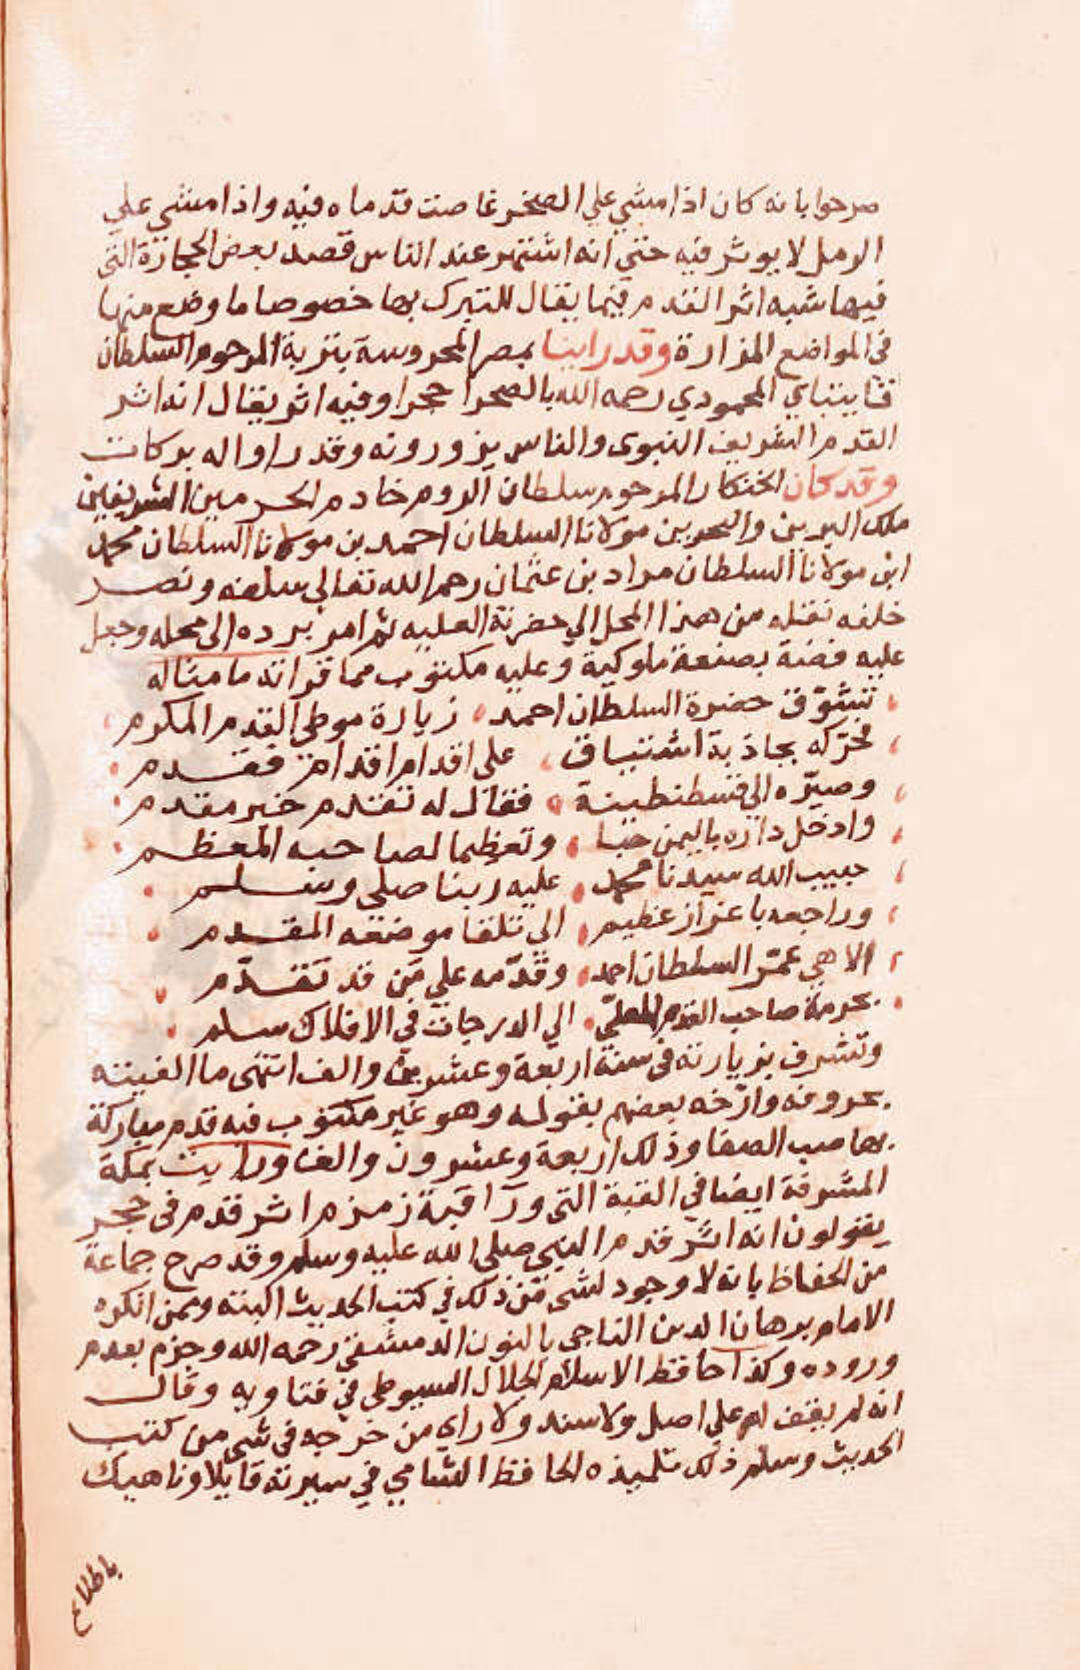 صرحوا بانه كان اذا مشي علي الصخر غاصت قدماه فيه واذا مشي علي
الرمل لا يوثر فيه حتي انه اشتهر عند الناس قصد بعض الحجارة التي
فيها شبه اثر القدم فيما يقال للتبرك بها خصوصا ما وضع منها
في المواضع المزارة وقد راينا بمصر المحروسة بتربة المرحوم السلطان
قايتباي المحمودي رحمه الله بالصحرا حجرا وفيه اثر يقال انه اثر
القدم الشريف النبوى والناس يزورونه وقد راوا له بركات
وقد كان الخنكار المرحوم سلطان الروم خادم الحرمين الشريفين
ملك البرين والبحرين مولانا السلطان احمد بن مولانا السلطان محمد
ابن مولانا السلطان مراد بن عثمان رحم الله تعالي سلفه ونصر
خلفه نقله من هذا المحل الي حضرته العليه ثم امر برده الى محله وجعل
عليه فضة بصنعة ملوكية وعليه مكتوب مما قراته ما مثاله
تشوّق حضرة السلطان احمد زيارة موطي القدم المكرم
فحرّكه بجاذبة اشتياق على اقدام اقدام فقدم
وصيّره الي قسطنطينة فقال له تقدم خير مقدم
وادخل داره باليمن حبا وتعظيما لصاحبه المعظم
حبيب الله سيدنا محمد عليه ربنا صلى وسلم
وراجعه باعزاز عظيم الي تلقا موضعه المقدم
الاهي عمّر السلطان احمد وقدّمه علي من قد تقدّم
بحرمة صاحب القدم المعلّي الي الدرجات في الافلاك سلم
وتشرف بزيارته في سنة اربعة وعشرين والف انتهى ما الفيته
بحروفه وارّخه بعضهم بقوله وهو غير مكتوب فيه قدم مباركة
بها صب الصفا وذلك اربعة وعشرون والف ورايت بمكة
المشرفة ايضا في القبة التى ورآ قبة زمزم اثر قدم في حجر
يقولون انه اثر قدم النبي صلي الله عليه وسلم وقد صرح جماعة
من الحفاظ بانه لا وجود لشى من ذلك في كتب الحديث البتة وممن انكره
الامام برهان الدين الناجي بالنون الدمشقي رحمه الله وجزم بعدم
وروده وكذا حافظ الاسلام الجلال السيوطي في فتاويه وقال
انه لم يقف له علي اصل ولا سند ولا راي من خرجه في شي من كتب
الحديث وسلم ذلك تلميذه الحافظ الشامي في سيرته قايلا وناهيك
باطلاع